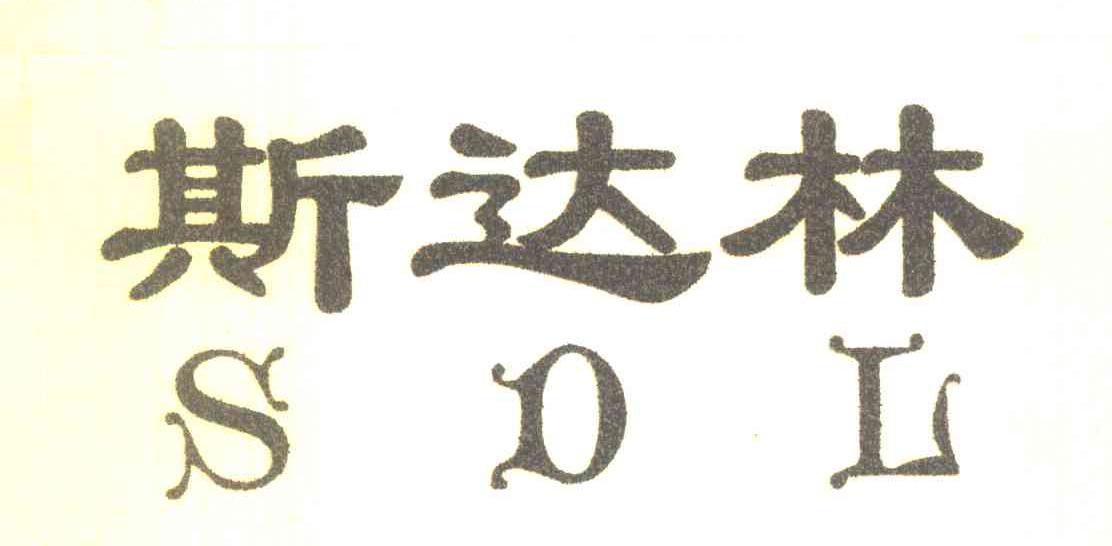 斯达林
SDL